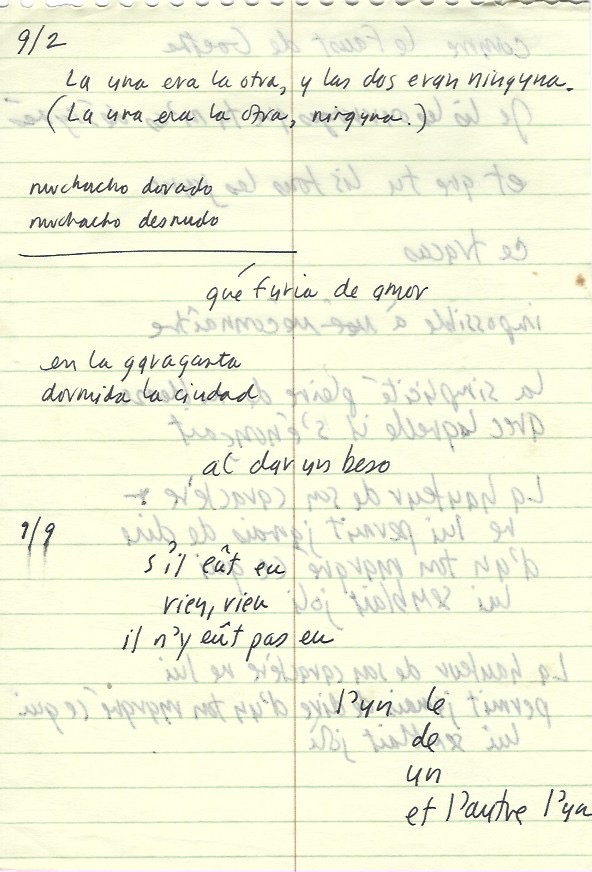 9/2
La una era la otra, y las dos eran ninguna.
(La una era la otra, ninguna.)
muchacho dorado
muchacho desnudo
qué furia de amor
en la garaganta
dormida la ciudad
al dar un beso
9/9
s'il eût eu
rien, rien
il n'y eût pas eu
l'un le
de
un
et l'autre l'un